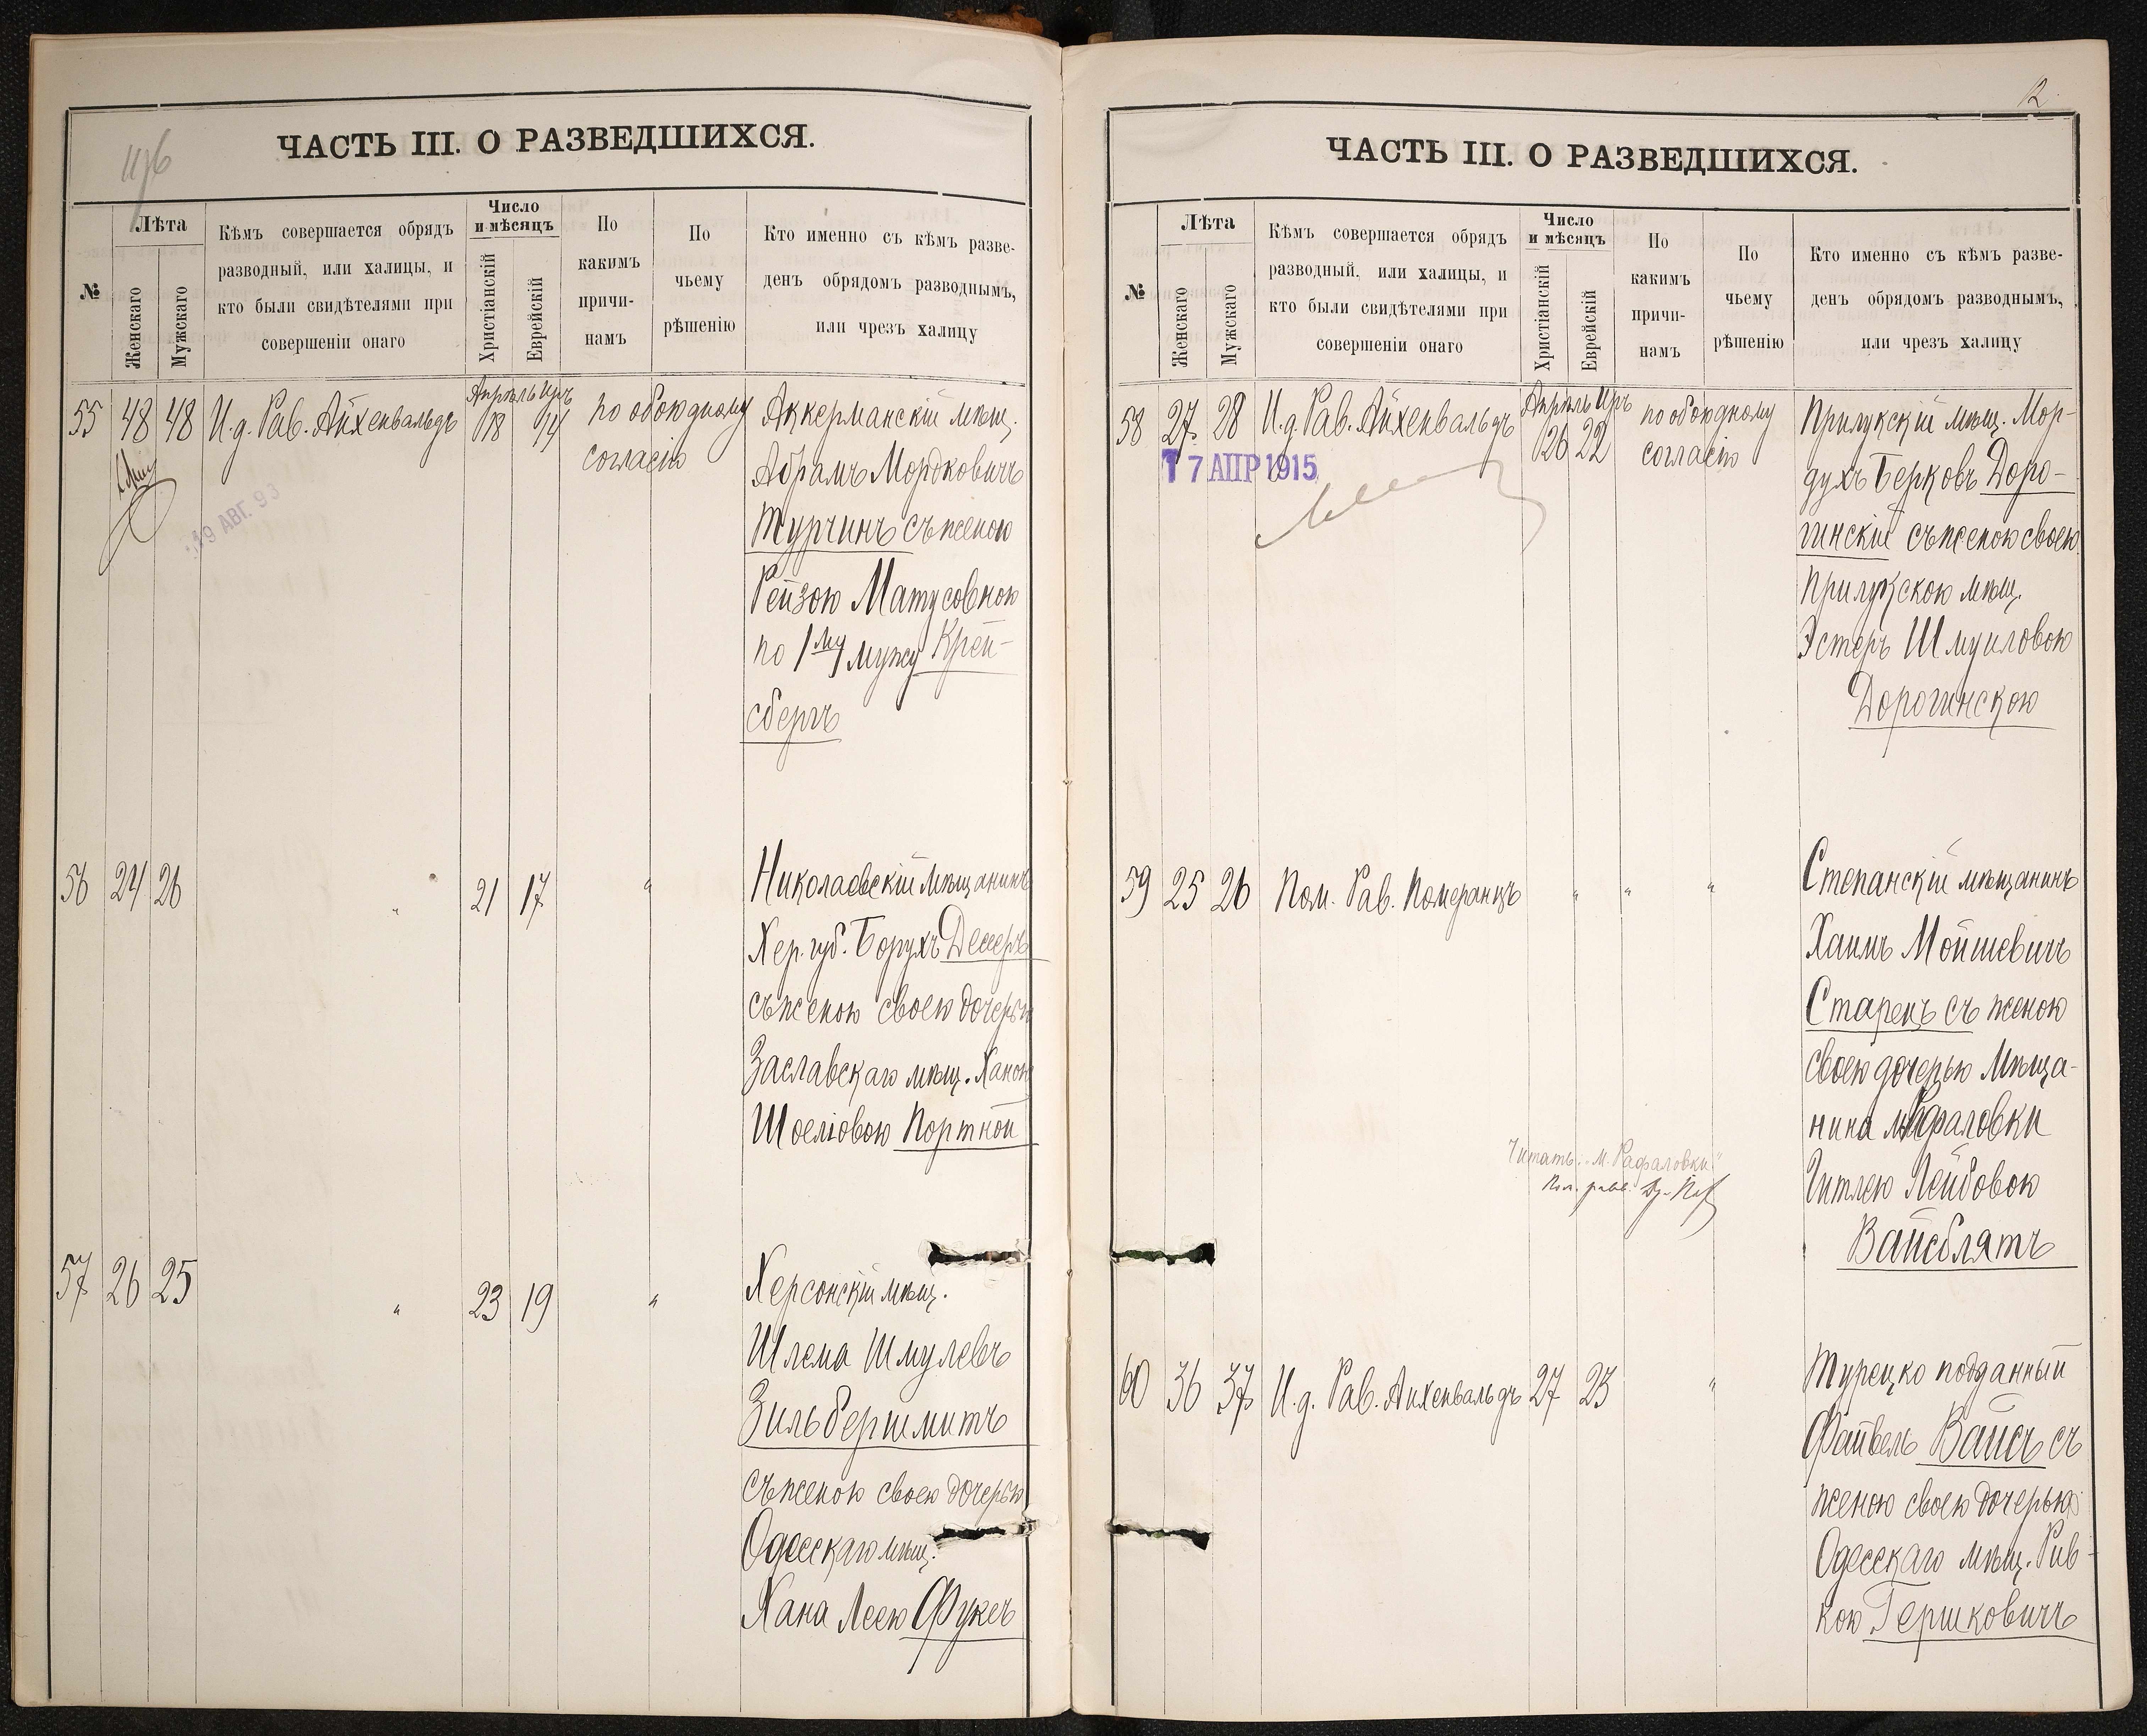 ЧАСТЬ III. О РАЗВЕДШИХСЯ.
№
Лѣта
Женскаго
Мужскаго
Кѣмъ совершается обрядъ
разводный, или халицы, и
кто были свидѣтелями при
совершеніи онаго
Число
и мѣсяцъ
Христіанскій
Еврейскій
По
какимъ
причи-
намъ
По
чьему
рѣшенію
Кто именно съ кѣмъ разве-
денъ обрядомъ разводнымъ,
или чрезъ халицу
55 48 48 И.д. Рав. Айхенвальдъ
Апрѣль Иръ
18 14
по обоюдному
согласію
Аккерманскій мѣщ.
Абрамъ Мордковичъ
Турчинъ съ женою
Рейзою Матусовною
по 1му мужу Крей-
сбергъ
19 АВГ. 93
56 24 26 " 21 17 "
Николаевскій мѣщанинъ
Хер. губ. Борухъ Десеръ
съ женою своею дочерью
Заславскаго мѣщ. Ханою
Шоеліовою Портной
57 26 25 " 23 19 "
Херсонскій мѣщ.
Шлема Шмулевъ
Зильбершмитъ
съ женою своею дочерью
Одесскаго мѣщ.
Хана Леею Фуксъ
12
ЧАСТЬ III. О РАЗВЕДШИХСЯ.
№
Лѣта
Женскаго
Мужскаго
Кѣмъ совершается обрядъ
разводный, или халицы, и
кто были свидѣтелями при
совершеніи онаго
Число
и мѣсяцъ
Христіанскій
Еврейскій
По
какимъ
причи-
намъ
По
чьему
рѣшенію
Кто именно съ кѣмъ разве-
денъ обрядомъ разводнымъ,
или чрезъ халицу
58 27 28 И.д. Рав. Айхенвальдъ
Апрѣль Иръ
26 22
по обоюдному
согласію
Прилукскій мѣщ. Мор-
духъ Берковъ Доро-
гинскій съ женою своею
Прилукскою мѣщ.
Эстеръ Шмуиловою
Дорогинскою
17 АПР 1915
59 25 26 Пом. Рав. Померанцъ " " "
Степанскій мѣщанинъ
Хаимъ Мойшевичъ
Старецъ съ женою
своею дочерью мѣща-
нина м. Рафаловки
Гитлею Лейбовою
Вайсблятъ
Читать: "м. Рафаловки"
Пом. равв.
60 36 37 И.д. Рав. Айхенвальдъ 27 23 "
Турецко подданный
Файвель Вайсъ съ
женою своею дочерью
Одесскаго мѣщ. Рив-
кою Гершковичъ